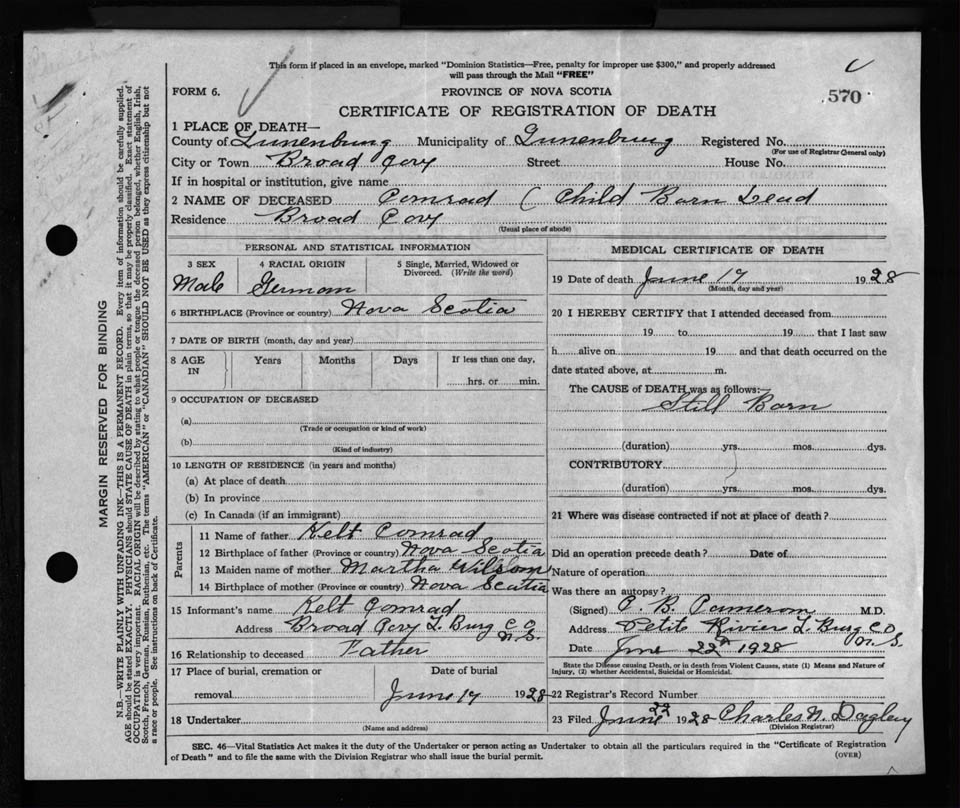 This form if placed in an envelope, marked "Dominion Statistics—Free, penalty for improper use $300," and properly addressed
will pass through the Mail "FREE"
FORM 6.
PROVINCE OF NOVA SCOTIA
570
CERTIFICATE OF REGISTRATION OF DEATH
1 PLACE OF DEATH—
County of Lunenburg Municipality of Lunenburg Registered No.
(For use of Registrar General only)
City or Town Broad Covy Street House No.
If in hospital or institution, give name
2 NAME OF DECEASED Comrad ( Child Born Dead
Residence Broad Covy
(Usual place of abode)
PERSONAL AND STATISTICAL INFORMATION
3 SEX 4 RACIAL ORIGIN 5 Single, Married, Widowed or Divorced. (Write the word)
Male German
6 BIRTHPLACE (Province or country) Nova Scotia
7 DATE OF BIRTH (month, day and year)
8 AGE IN Years Months Days If less than one day,
hrs. or min.
9 OCCUPATION OF DECEASED
(a)
(Trade or occupation or kind of work)
(b)
(Kind of industry)
10 LENGTH OF RESIDENCE (in years and months)
(a) At place of death
(b) In province
(c) In Canada (if an immigrant)
Parents
11 Name of father Kelt Comrad
12 Birthplace of father (Province or country) Nova Scotia
13 Maiden name of mother Martha Wilson
14 Birthplace of mother (Province or country) Nova Scotia
15 Informant's name Kelt Comrad
Address Broad Covy L. Burg Co N.S.
16 Relationship to deceased Father
17 Place of burial, cremation or removal Date of burial
June 17 1928
18 Undertaker
(Name and address)
MEDICAL CERTIFICATE OF DEATH
19 Date of death June 17 1928
(Month, day and year)
20 I HEREBY CERTIFY that I attended deceased from
19 to 19 that I last saw
h alive on 19 and that death occurred on the
date stated above, at m.
The CAUSE of DEATH was as follows:
Still Born
(duration) yrs. mos. dys.
CONTRIBUTORY
(duration) yrs. mos. dys.
21 Where was disease contracted if not at place of death?
Did an operation precede death? Date of
Nature of operation
Was there an autopsy?
(Signed) C. B. Cameron M.D.
Address Petite Rivier L. Burg Co N.S.
Date June 22nd 1928
State the Disease causing Death, or in death from Violent Causes, state (1) Means and Nature of
Injury, (2) whether Accidental, Suicidal or Homicidal.
22 Registrar's Record Number
23 Filed June 22 1928 Charles N. Dagley
(Division Registrar)
SEC. 46—Vital Statistics Act makes it the duty of the Undertaker or person acting as Undertaker to obtain all the particulars required in the "Certificate of Registration
of Death" and to file the same with the Division Registrar who shall issue the burial permit.
(OVER)
MARGIN RESERVED FOR BINDING
N.B.—WRITE PLAINLY WITH UNFADING INK—THIS IS A PERMANENT RECORD. Every item of information should be carefully supplied.
AGE should be stated EXACTLY. PHYSICIANS should STATE CAUSE OF DEATH in plain terms, so that it may be properly classified. Exact statement of
OCCUPATION is very important. RACIAL ORIGIN will be described by stating to what people or tongue the deceased person belonged, whether English, Irish,
Scotch, French, German, Russian, Ruthenian, etc. The terms "AMERICAN" or "CANADIAN" SHOULD NOT BE USED as they express citizenship but not
a race or people. See instructions on back of Certificate.